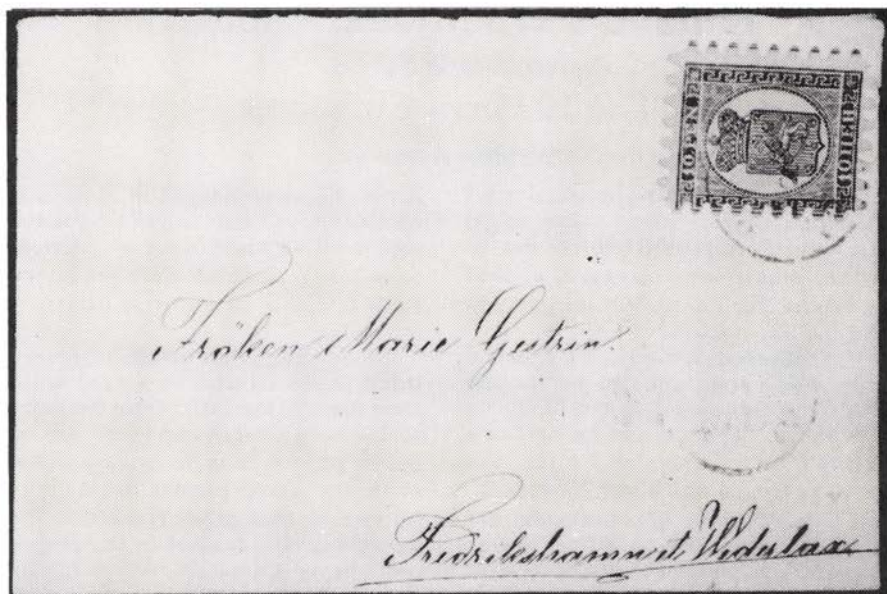 Fröken Marie Gestrin.
Fredrikshamn et Wederlax